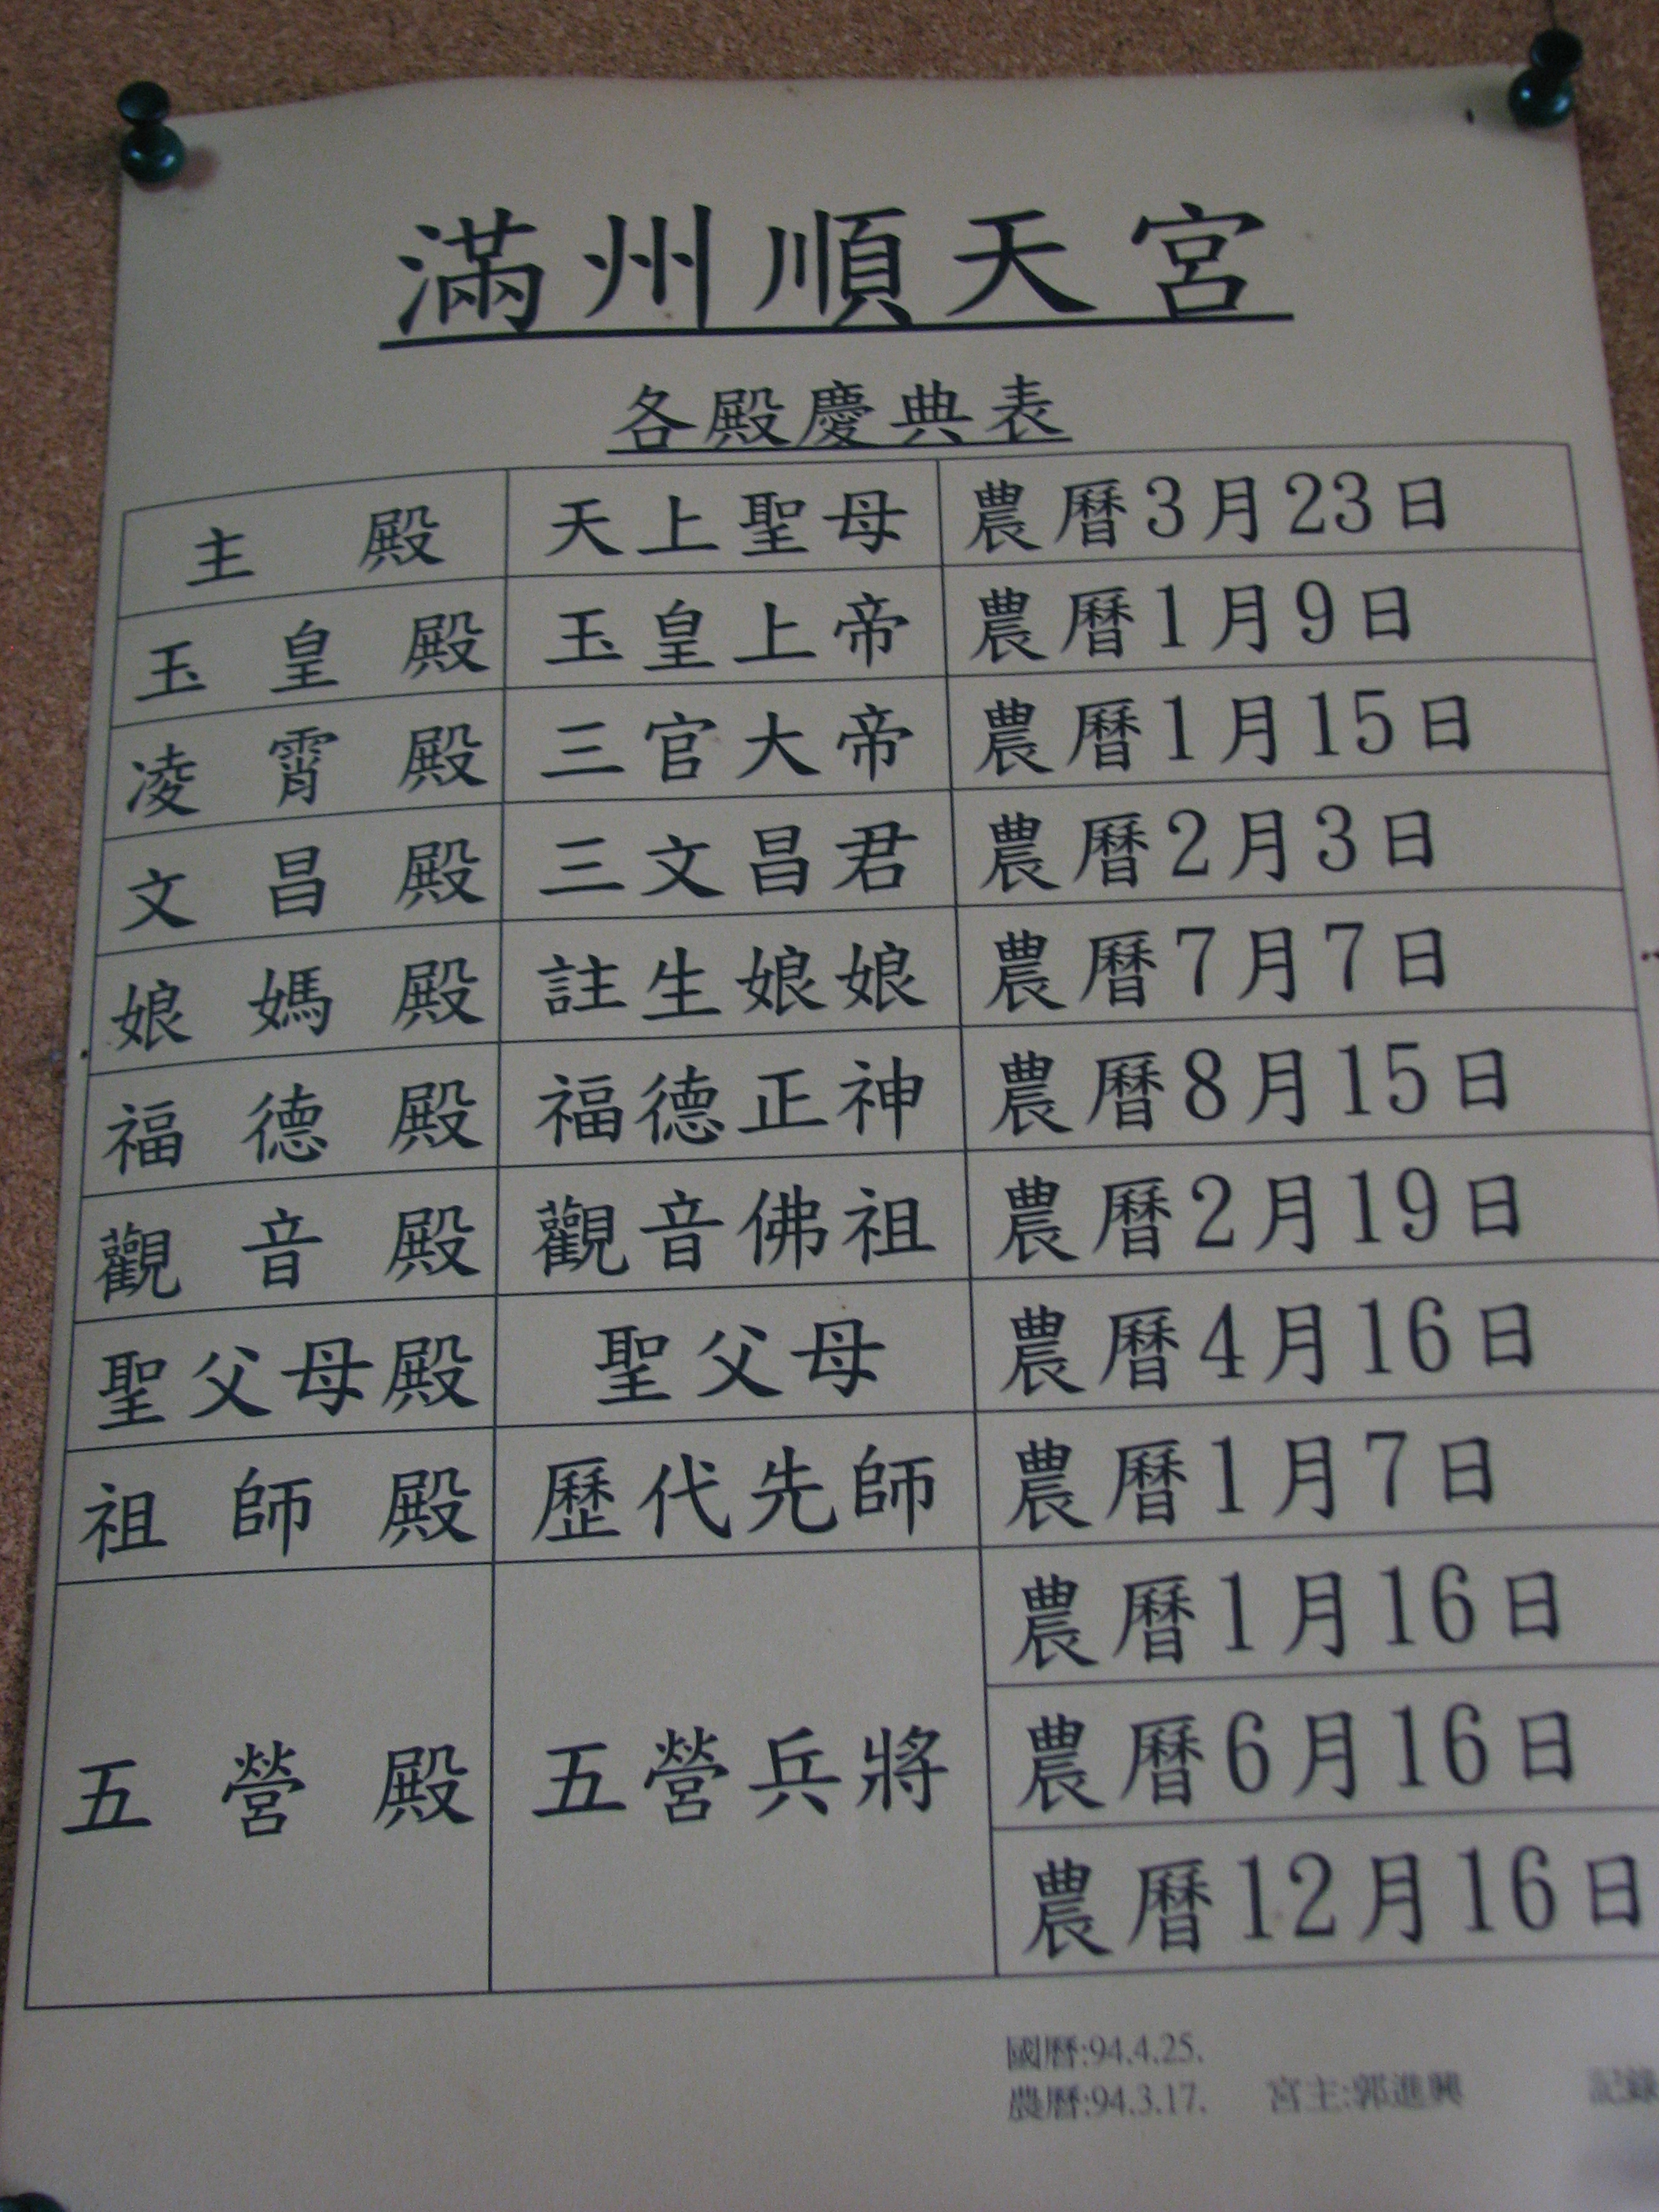 滿州順天宮
各殿慶典表
主殿 天上聖母 農曆3月23日
玉皇殿 玉皇上帝 農曆1月9日
凌霄殿 三官大帝 農曆1月15日
文昌殿 三文昌君 農曆2月3日
娘媽殿 註生娘娘 農曆7月7日
福德殿 福德正神 農曆8月15日
觀音殿 觀音佛祖 農曆2月19日
聖父母殿 聖父母 農曆4月16日
祖師殿 歷代先師 農曆1月7日
五營殿 五營兵將 農曆1月16日
農曆6月16日
農曆12月16日
國曆:94.4.25.
農曆:94.3.17. 宮主:郭進興 記錄